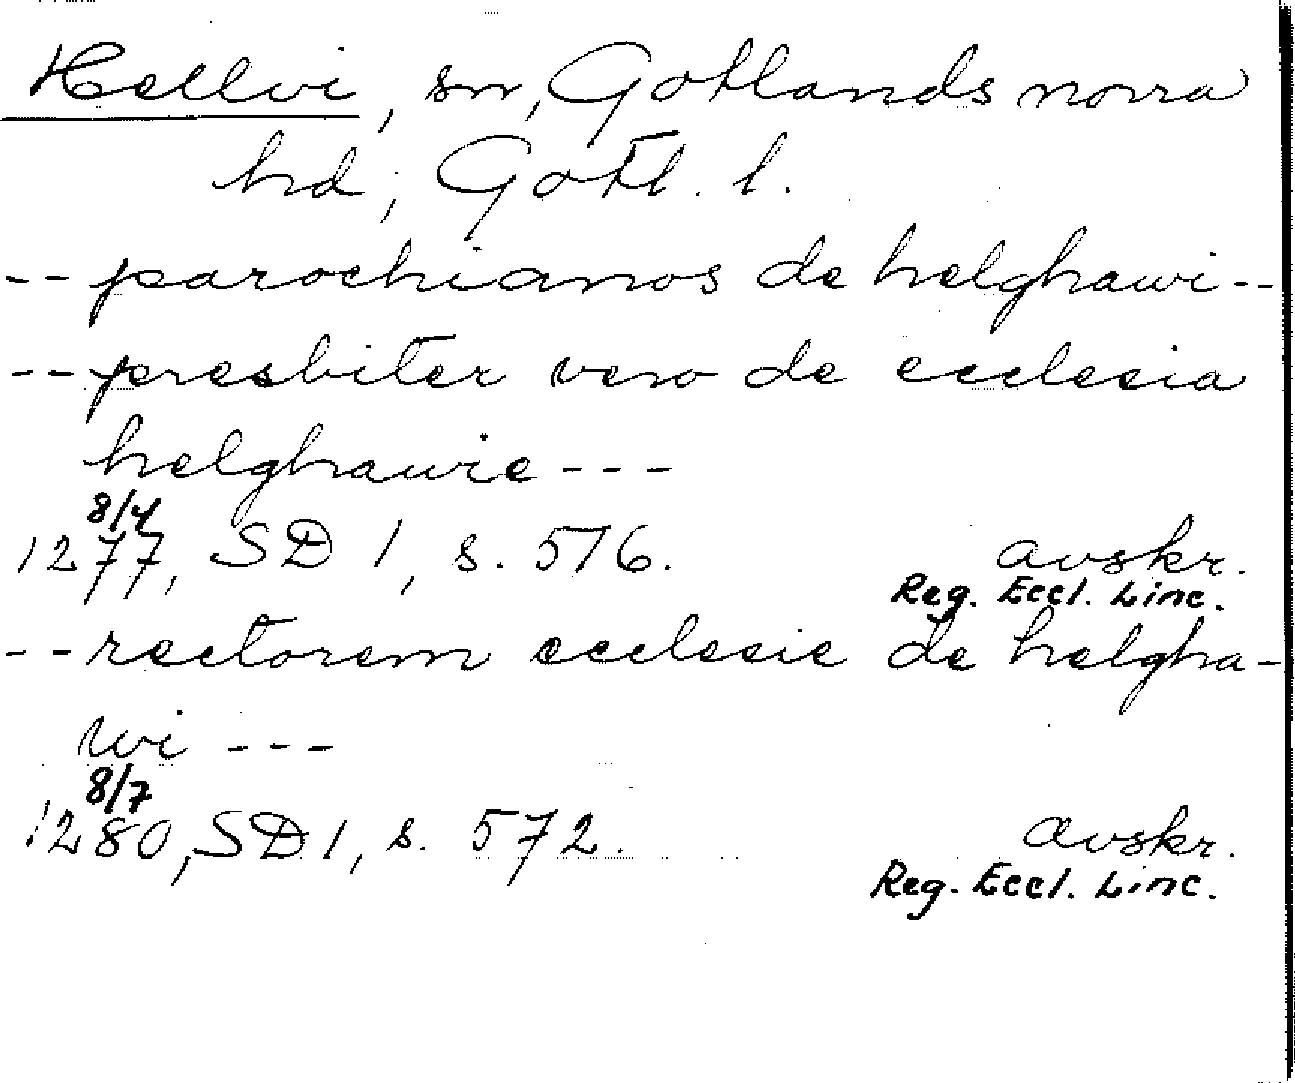 Hellvi, sn, Gotlands norra
hd, Gotl. l.
--parochianos de helghawi--
--presbiter vero de ecclesia
helghawie---
8/4
1277, SD 1, s. 516. avskr.
Reg. Eccl. Linc.
--rectorem ecclesie de helgha-
wi ---
8/7
1280, SD 1, s. 572. avskr.
Reg. Eccl. Linc.